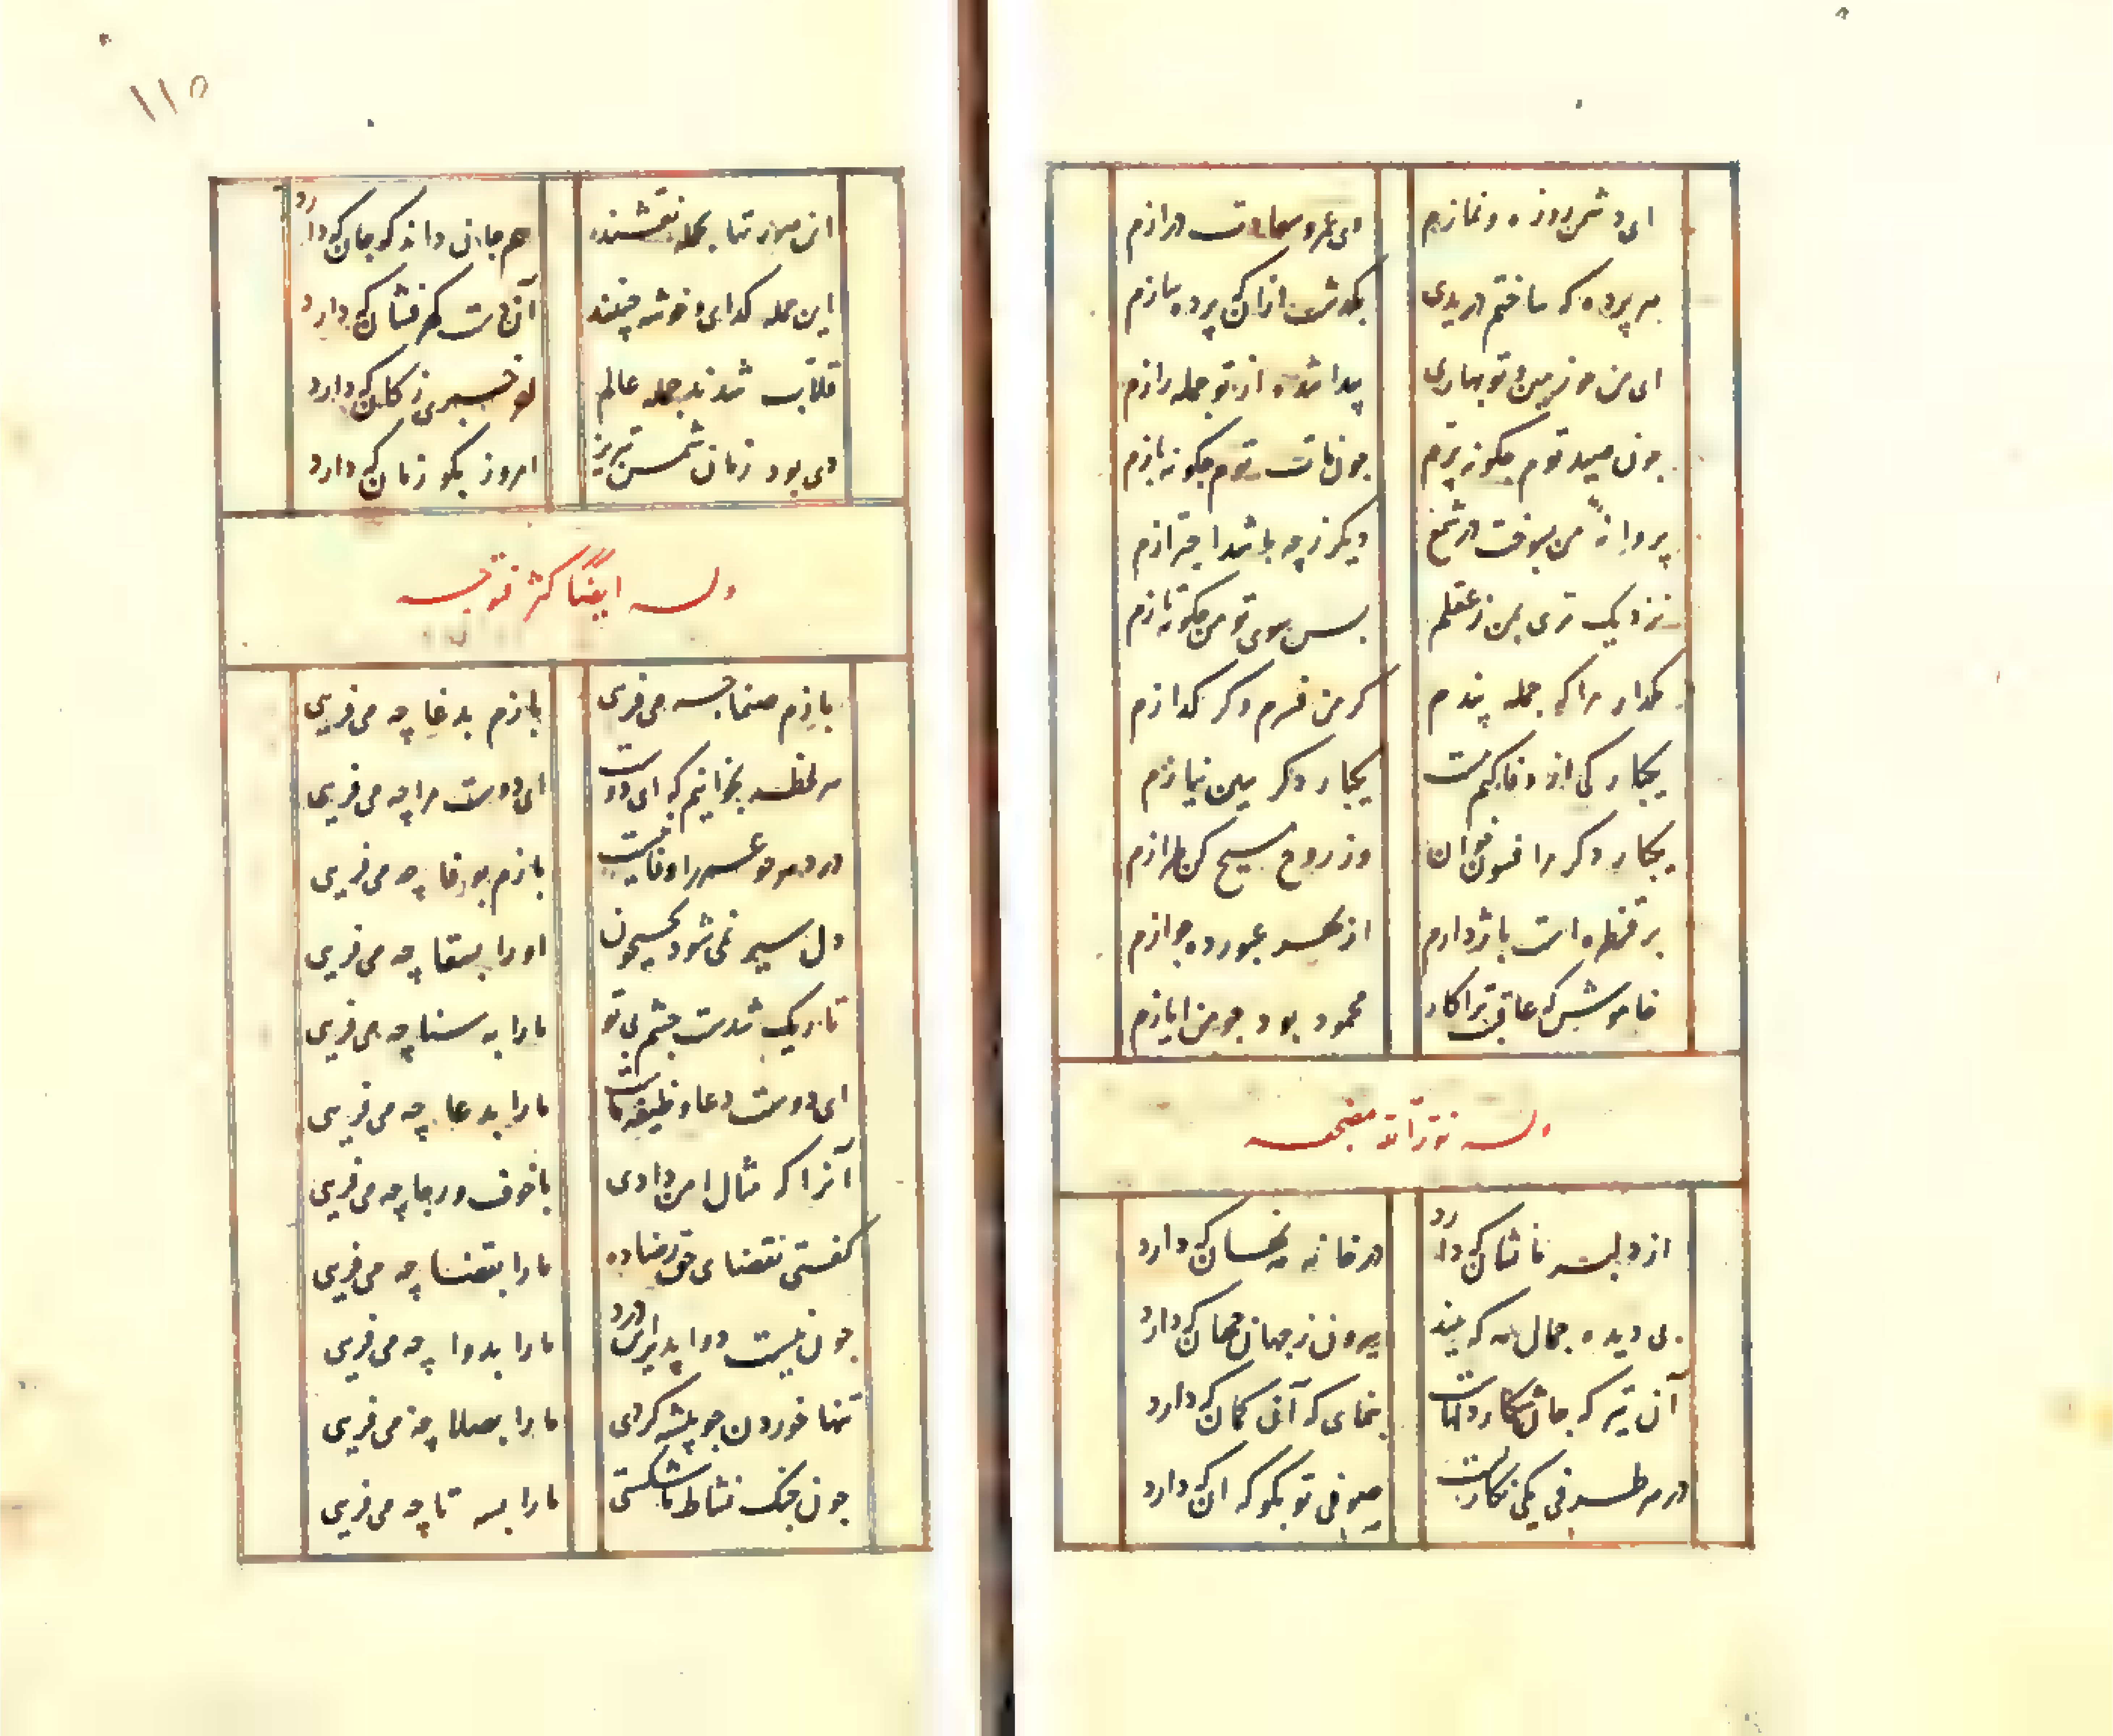 ای دشمن روزه و نمازم وی عمر و سعادت درازم
هر پرده که ساختم دریدی بگذشت ازان که پرده سازم
ای من چو زمین و تو بهاری پیدا شده از تو جمله رازم
چون صید توم چگونه پرم چون مات توم چگونه بازم
پروانهٔ من بسوخت در شمع دیگر ز چه باشد احترازم
نزدیک تری بمن ز عقلم پس سوی تو من چگونه یازم
بگداز مرا که جمله پندم گر من فسرم وگر گدازم
یکبارگی از وفا مکش دست یکبار دگر ببین نیازم
یکبار دگر مرا فسون خوان وز روح مسیح کن طرازم
بر قنطره است باژدارم از بهر عبور ده جوازم
خاموش که عاقبت مرا کار محمود بود چو من ایازم
وله نور الله مضجعه
از دلبر ما نشان که دارد در خانه مه نهان که دارد
بی دیده جمال مه که بیند بیرون ز جهان جهان که دارد
آن تیر که جان شکار آنست بنمای که آن کمان که دارد
در هر طرفی یکی نگاریست صوفی تو بگو که آن که دارد
۱۱۵
این صورتها جمله نقشند هم جانی داند که جان که دارد
این جمله گدای و خوشه چینند آن دست گهرفشان که دارد
قلاب شدند جمله عالم کو خبری ز کان که دارد
دی بود زمان شمس تبریز امروز بگو زمان که دارد
وله ایضا کثر فتوحه
بازم صنما چه می فریبی بازم بدغا چه می فریبی
هر لحظه بخوانیم که ای دوست ای دوست مرا چه می فریبی
در دهر چو عمر را وفا نیست بازم بوفا چه می فریبی
دل سیر نمی شود بجیحون او را بسقا چه می فریبی
تاریک شدست چشم بی تو ما را به سنا چه می فریبی
ای دوست دعا وظیفه ماست ما را بدعا چه می فریبی
آنرا که مثال امن دادی با خوف و رجا چه می فریبی
گفتی بقضای حق رضا ده ما را بقضا چه می فریبی
چون نیست دوا پذیر این درد ما را بدوا چه می فریبی
تنها خوردن چو پیشه کردی ما را بصلا چه می فریبی
چون چنگ نشاط ما شکستی ما را بسه تا چه می فریبی